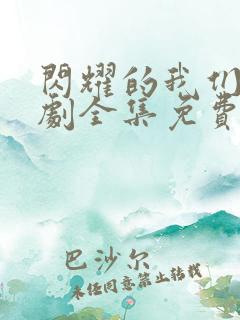 閃耀的我们
劇全集免費
巴沙尔
未经同意禁止转载